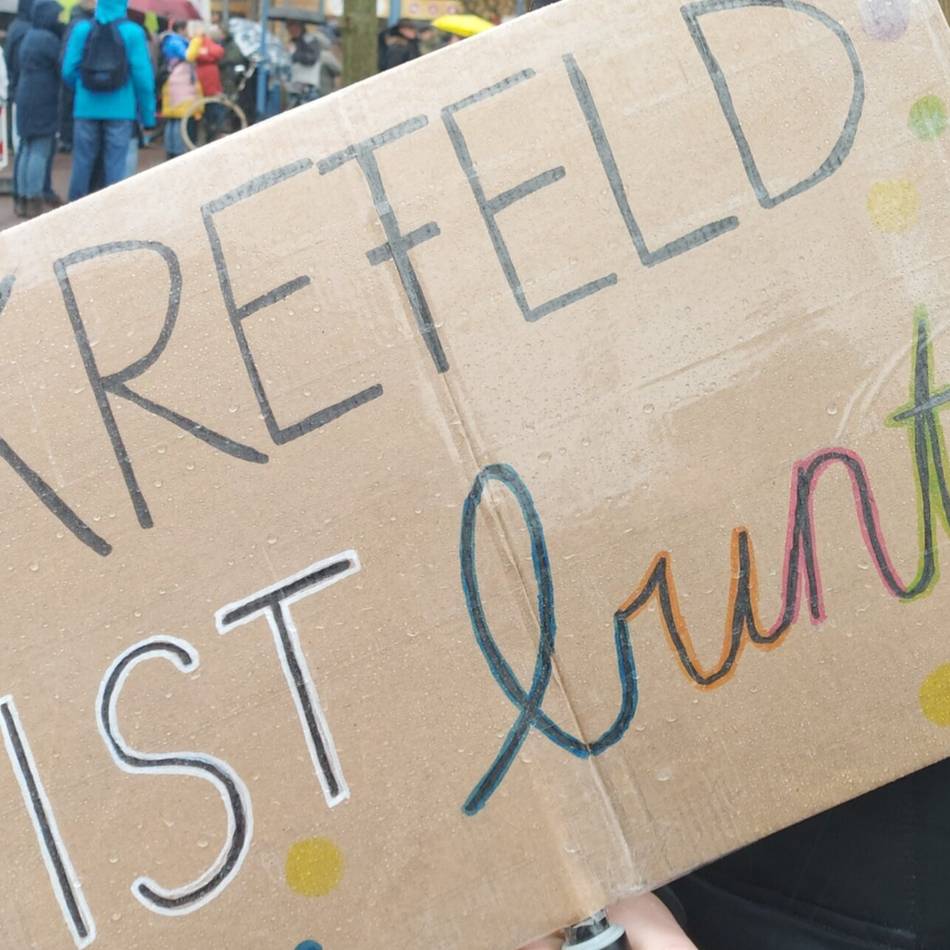 KREFELD
IST bunt